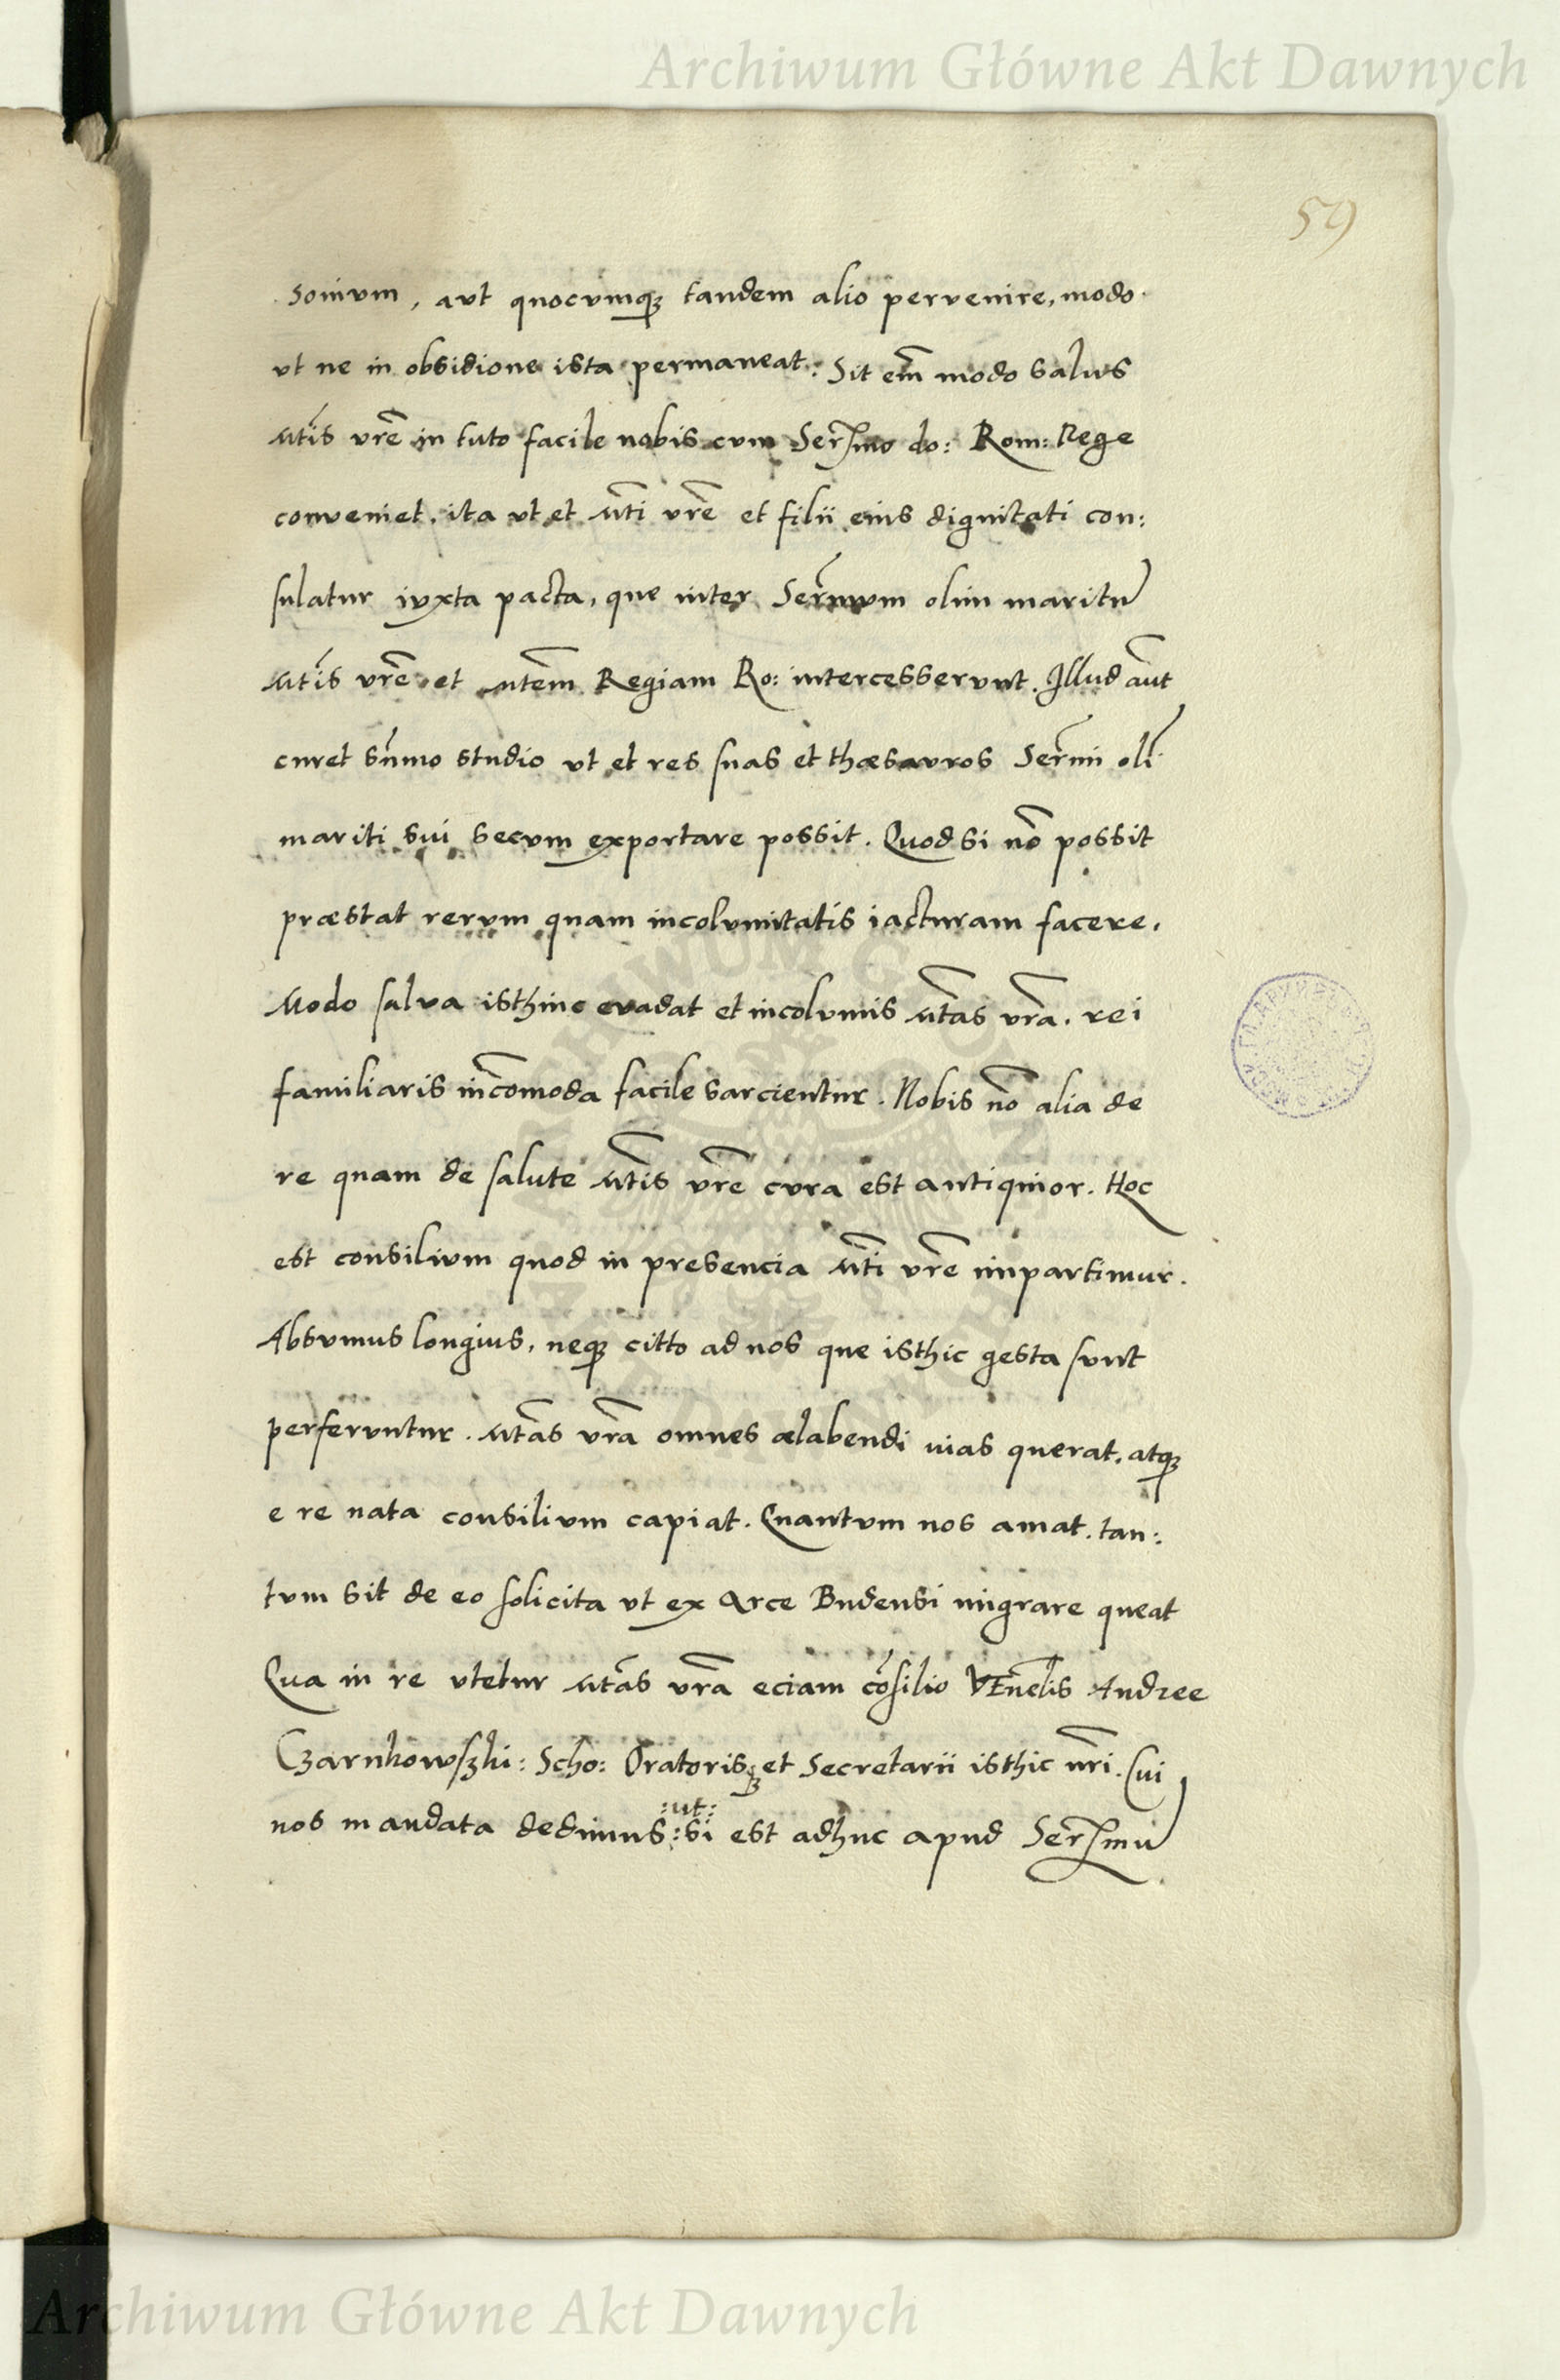 Archiwum Główne Akt Dawnych
59
Somum, aut quocumq₃ tandem alio pervenire, modo
vt ne in obsidione ista permaneat: Sit em̃ modo salus
Mt̃is vrẽ in tuto facile nobis cum Serᵐᵒ do: Rom: Rege
conveniet, ita vt et Mt̃i vrẽ et filii eius dignitati con:
sulatur iuxta pacta, que inter Sermum olim maritũ
Mt̃is vrẽ et Mtẽm Regiam Ro: intercesserunt. Illud aũt
curet sũmo studio vt et res suas et thæsauros Sermi oli
mariti sui secum exportare possit. Quod si nõ possit
præstat rerum quam incolumitatis iacturam facere,
Modo salva isthinc evadat et incolumis Mt̃as vrã. rei
familiaris incõmoda facile sarcientur. Nobis nõ alia de
re quam de salute Mt̃is vrẽ cura est antiquior. Hoc
est consilium quod in presencia Mt̃i vrẽ impartimur.
Absumus longius, neq₃ citto ad nos que isthic gesta sunt
perferuntur. Mt̃as vrã omnes ælabendi uias querat, atq₃
e re nata consilium capiat. Quantum nos amat, tan:
tum sit de eo solicita vt ex Arce Budensi migrare queat
Qua in re vtetur Mt̃as vrã eciam cõsilio VEnelis Andree
Czarnkowsʒki: Scho: Oratorisq₃ et Secretarii isthic nr̃i. Cui
:ut:
nos mandata dedimus: si est adhuc apud Serᵐũ
Archiwum Główne Akt Dawnych